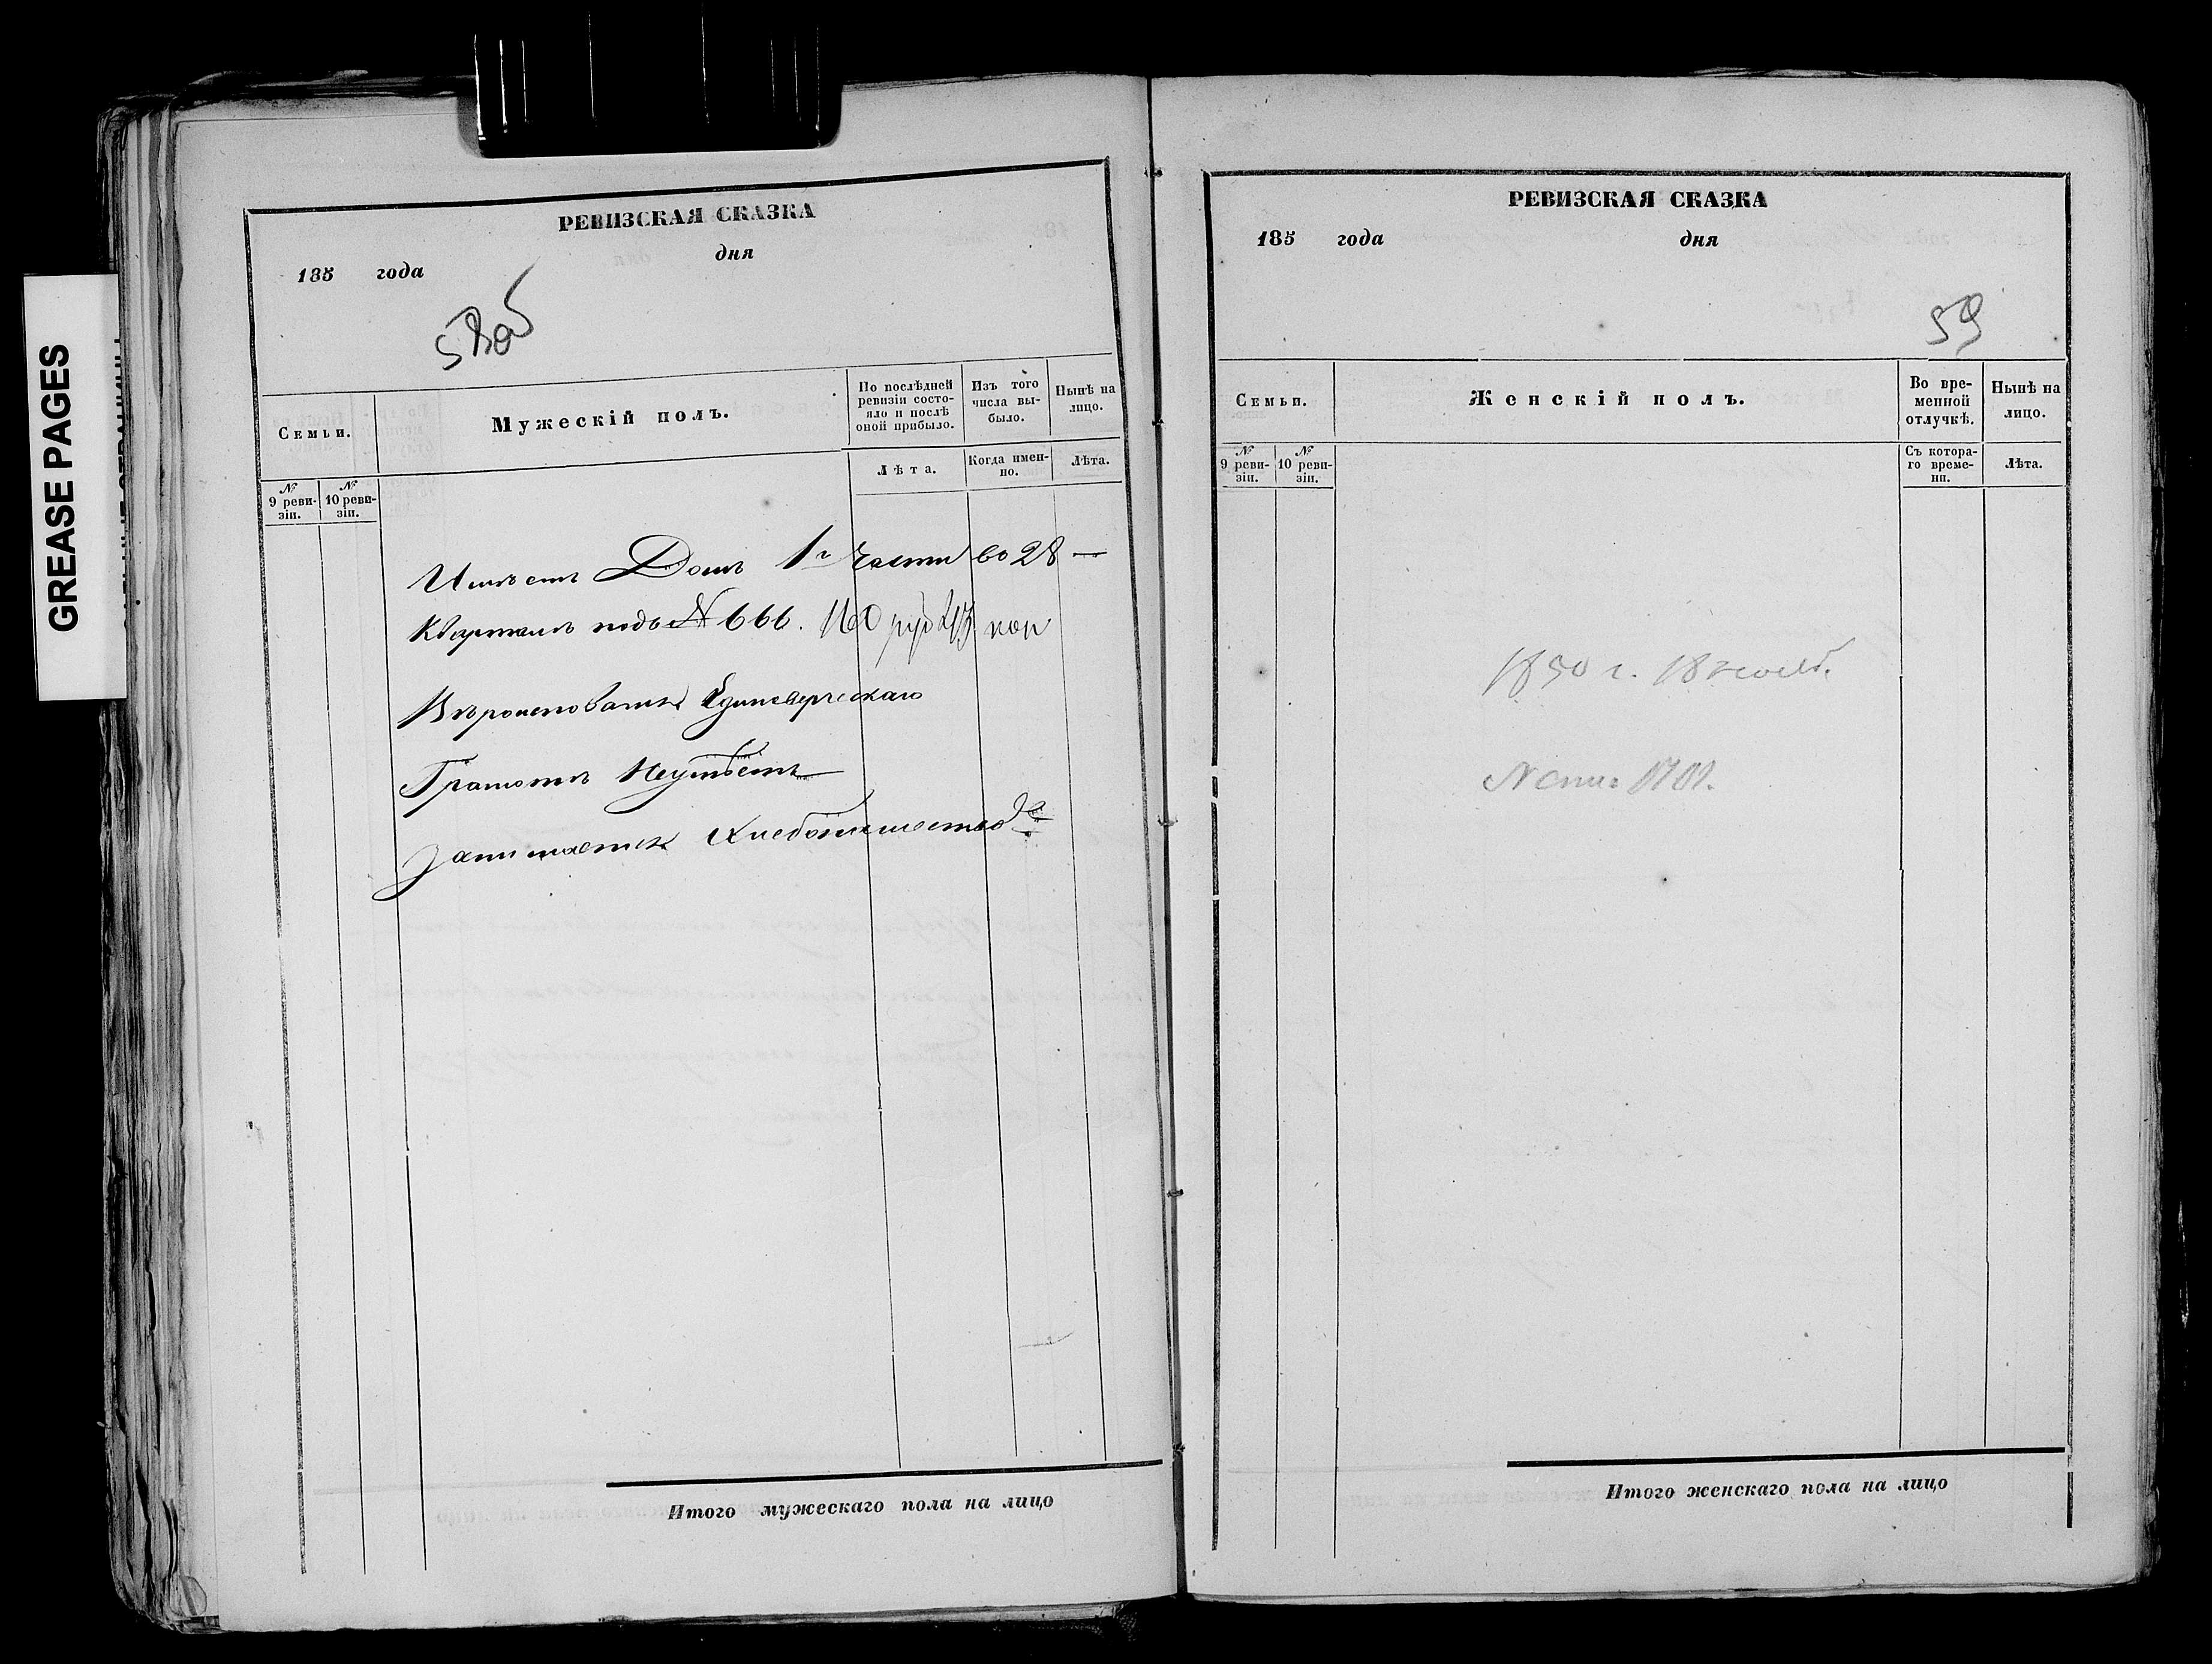 GREASE PAGES
РЕВИЗСКАЯ СКАЗКА
185 года дня
58 об
Семьи.
Мужескій полъ.
По послѣдней ревизіи состояло и послѣ оной прибыло.
Изъ того числа выбыло.
Нынѣ на лицо.
Лѣта.
Когда именно.
Лѣта.
№ 9 ревизіи.
№ 10 ревизіи.
Имѣетъ Домъ 1й части во 28 —
Кварталѣ подъ № 666. 160 руб коп
Вѣроисповѣданія Единоверческаго
Грамотѣ Неумѣетъ
Занимается Хлебопашество
Итого мужескаго пола на лицо
РЕВИЗСКАЯ СКАЗКА
185 года дня
59
Семьи.
Женскій полъ.
Во временной отлучкѣ.
Нынѣ на лицо.
№ 9 ревизіи.
№ 10 ревизіи.
Съ котораго времени.
Лѣта.
1850 г. 18
N
Итого женскаго пола на лицо